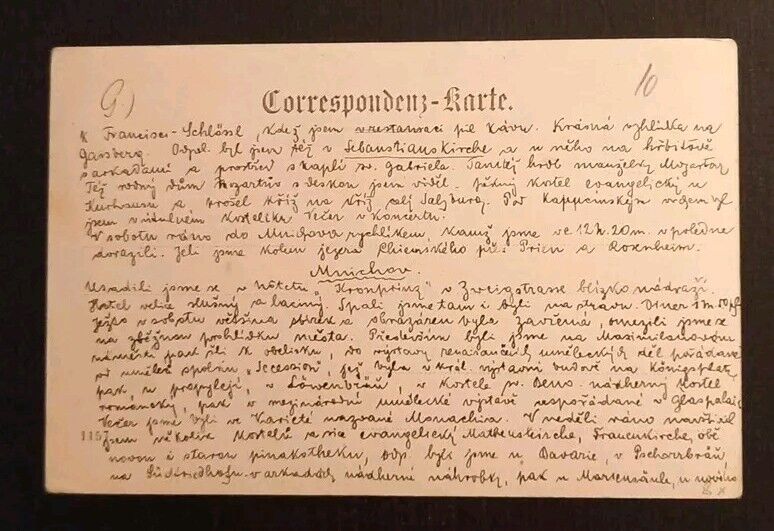 G.)
10
Correspondenz-Karte.
k Francisci-Schlössl, kdež jsem v restauraci pil kávu. Krásná vyhlídka na
Gaisberg. Odpol. byl jsem též v Sebastianskirche a u něho na hřbitově
s arkadami a prostřed s kaplí sv. Gabriela. Tamtéž hrob manželky Mozartovy
Též rodný dům Mozartův s deskou jsem viděl. pěkný kostel evangelický u
Kurhausu a prošel křiž na křiž celý Salzburg. Pod Kapucinským vrchem byl
jsem v útulném kostelíku Večer v koncertu.
V sobotu ráno do Mnichova rychlíkem, kamž jsme ve 12 h. 20 m. v poledne
dorazili. Jeli jsme kolem jezera Chiemského přes Prien a Rosenheim.
Mnichov.
Usadili jsme se v hôtelu "Kronprinz" v Zweigstrasse blízko nádraží.
Hostel velice slušný a laciný. Spali jsme tam i byli na stravu. Diner 1 m 50 pf
Ježto v sobotu většina sbírek a obrazáren byla zavřená, omezili jsme se
na zběžnou prohlídku města. Především byli jsme na Maximilianovém
náměstí pak šli k obelisku, do výstavy renaissančních uměleckých děl pořádané
od uměleč. spolku "Secession", jež byla v král. výstavní budově na Königsplatz,
pak v propylejí, v Löwenbräu, v kostele sv. Beno. nádherný kostel
románský, pak v mezinárodní umělecké výstavě uspořádané v Glaspalais
Večer jsme byli ve Varieté nazvané Monachia. V neděli ráno navštívil
jsem několik kostelů a sice evangelický Matheuskirche, Frauenkirche, obě
1157
novou i starou pinakotheku, odp. byli jsme u Bavarie, v Pschorrbräu
na Südfriedhofu v arkádách nádherné náhrobky, pak u Mariensäule, u nového